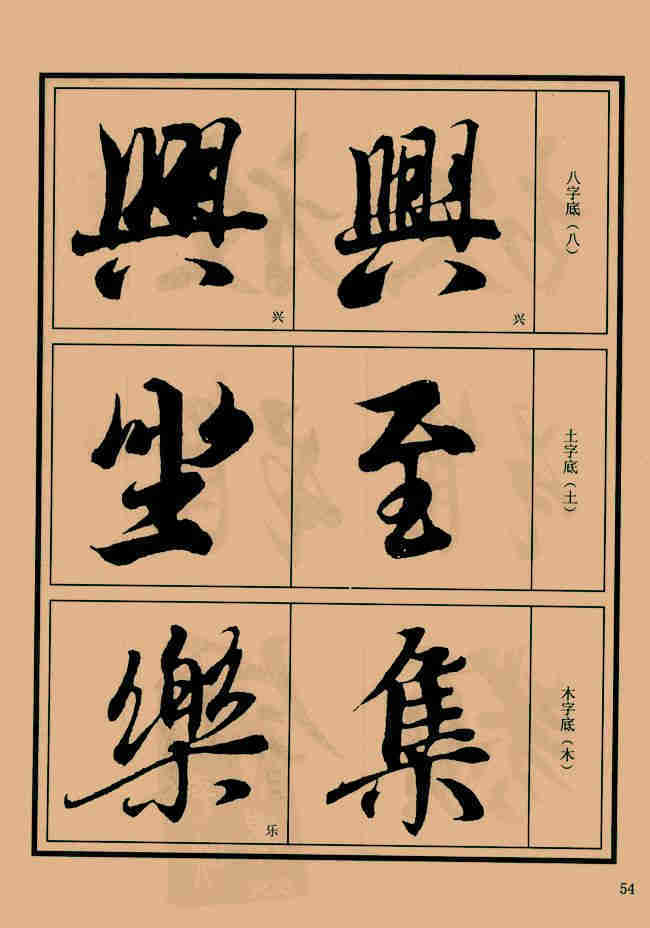 八字底（八）
興
兴
興
兴
土字底（土）
至
坐
木字底（木）
集
樂
乐
54